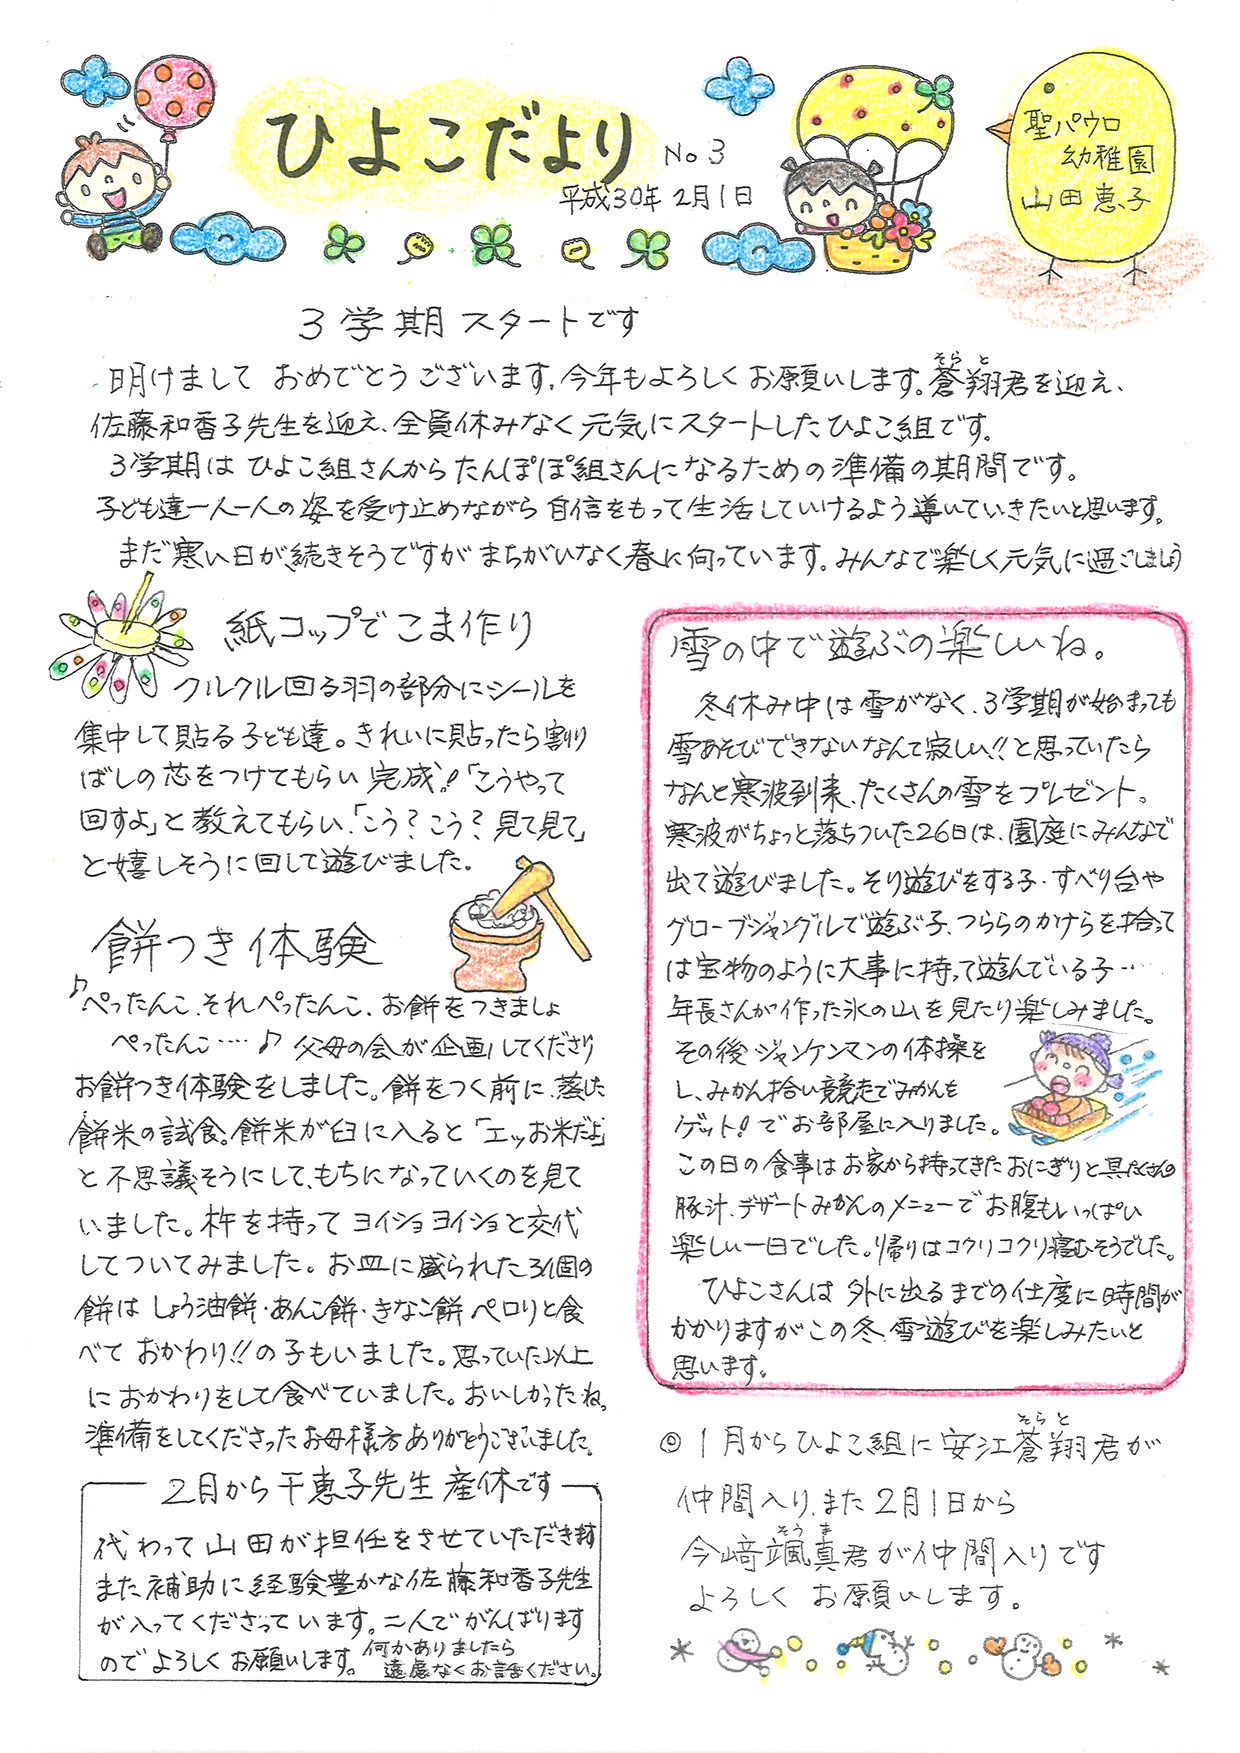 ひよこだより No 3
平成30年 2月1日
聖パウロ
幼稚園
山田恵子
3学期スタートです
明けまして おめでとうございます。今年もよろしくお願いします。蒼翔君を迎え、
そら と
佐藤和香子先生を迎え、全員休みなく元気にスタートしたひよこ組です。
3学期は ひよこ組さんからたんぽぽ組さんになるための準備の期間です。
子ども達一人一人の姿を受け止めながら自信をもって生活していけるよう導いていきたいと思います。
まだ寒い日が続きそうですが まちがいなく春に向っています。みんなで楽しく元気に過ごしましょう
紙コップでこま作り
クルクル回る羽の部分にシールを
集中して貼る子ども達。きれいに貼ったら割り
ばしの芯をつけてもらい完成!「こうやって
回すよ」と教えてもらい、「こう?こう?見て見て」
と嬉しそうに回して遊びました。
餅つき体験
♪ぺったんこ、それぺったんこ、お餅をつきましょ
ぺったんこ‥‥♪ 父母の会が企画してくださり
お餅つき体験をしました。餅をつく前に、蒸した
餅米の試食。餅米が臼に入ると「エッお米だよ」
と不思議そうにして、もちになっていくのを見て
いました。杵を持って ヨイショヨイショと交代
してついてみました。お皿に盛られた3個の
餅は しょう油餅・あんこ餅・きなこ餅 ペロリと食
べて おかわり!!の子もいました。思っていた以上
におかわりをして食べていました。おいしかったね。
準備をしてくださったお母様方ありがとうございました。
2月から千恵子先生 産休です
代わって山田が担任をさせていただきます
また補助に経験豊かな佐藤和香子先生
が入ってくださっています。二人でがんばります
のでよろしくお願いします。何かありましたら
遠慮なくお話ください。
雪の中で遊ぶの楽しいね。
冬休み中は雪がなく、3学期が始まっても
雪あそびできないなんて寂しい!!と思っていたら
なんと寒波到来、たくさんの雪をプレゼント。
寒波がちょっと落ちついた26日は、園庭にみんなで
出て遊びました。そり遊びをする子・すべり台や
グローブジャングルで遊ぶ子、つららのかけらを拾って
は宝物のように大事に持って遊んでいる子‥‥
年長さんが作った氷の山を見たり楽しみました。
その後ジャンケンマンの体操を
し、みかん拾い競走でみかんを
ゲット!でお部屋に入りました。
この日の食事はお家から持ってきたおにぎりと具だくさんの
豚汁、デザートみかんのメニューでお腹もいっぱい
楽しい一日でした。帰りはコクリコクリ寝むそうでした。
ひよこさんは 外に出るまでの仕度に時間が
かかりますがこの冬、雪遊びを楽しみたいと
思います。
◎1月からひよこ組に安江蒼翔君が
そら と
仲間入り、また2月1日から
今﨑颯真君が仲間入りです
そう ま
よろしく お願いします。